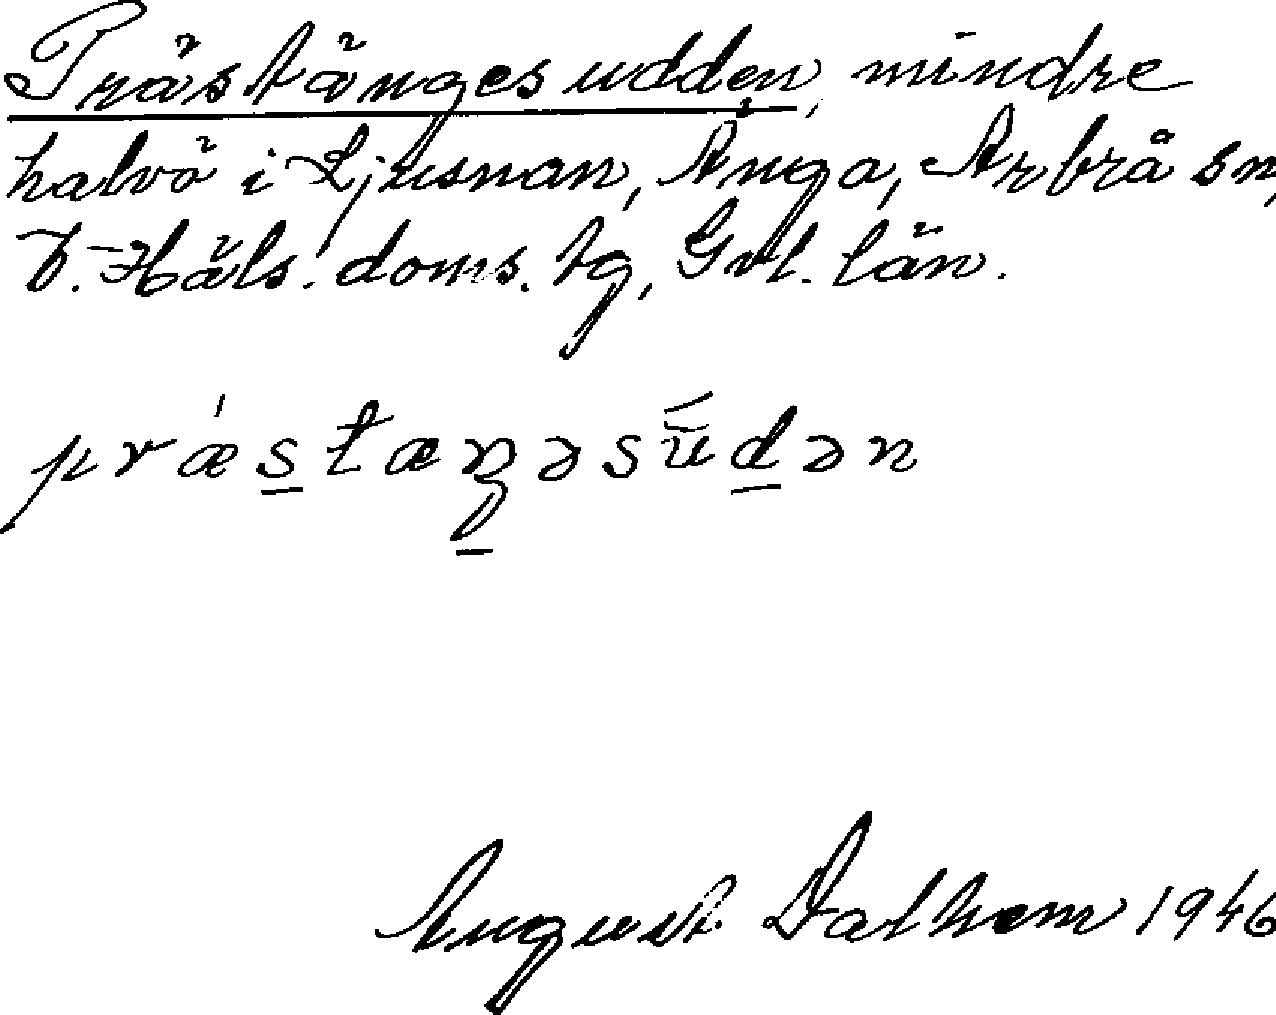 Prästängesudden, mindre
halvö i Ljusnan, Ånga, Arbrå sn,
V. Häls. doms. tg, Gvl. län.
prǽs̲tæŋ̲əsŭ̄d̲ən
August Dalhem 1946